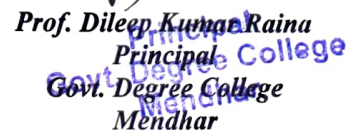 Prof. Dileep Kumar Raina
Principal
Govt. Degree College
Mendhar
Principal
Govt. Degree College
Mendhar